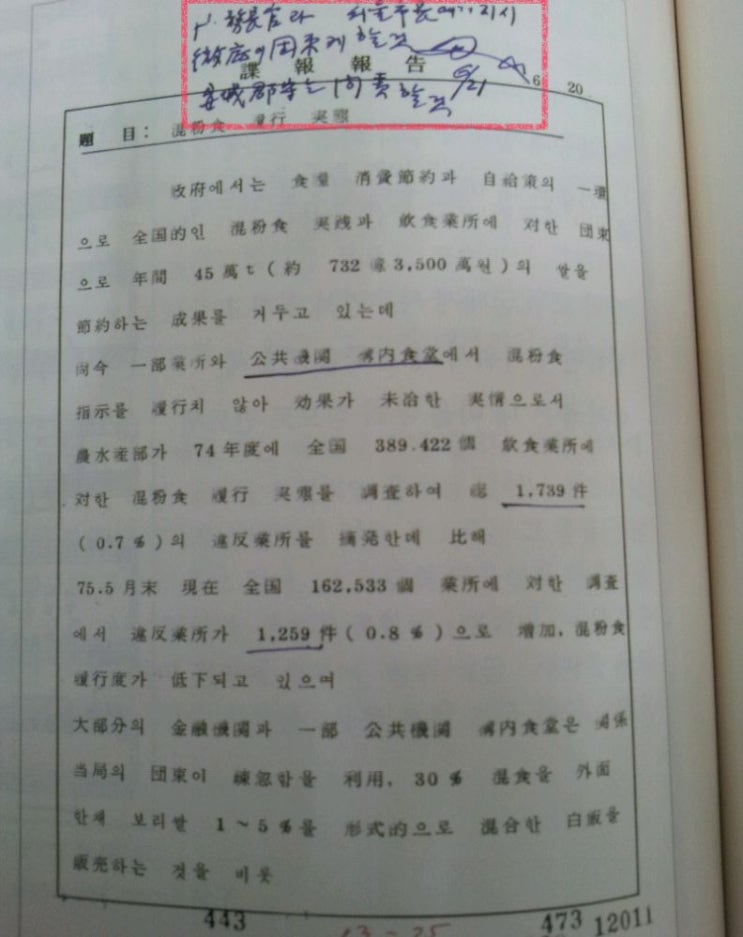 徹底이 団束케 할것
諜報報告
6 20
安城郡守는 問責할것 6/21
題目: 混粉食 履行 実態
政府에서는 食糧 消費節約과 自給策의 一環
으로 全国的인 混粉食 実践과 飲食業所에 対한 団束
으로 年間 45萬t(約 732億3,500萬원)의 쌀을
節約하는 成果를 거두고 있는데
尙今 一部業所와 公共機関 構内食堂에서 混粉食
指示를 履行치 않아 効果가 未洽한 実情으로서
農水産部가 74年度에 全国 389.422個 飲食業所에
対한 混粉食 履行 実態를 調査하여 総 1,739件
(0.7%)의 違反業所를 摘発한데 比해
75.5月末 現在 全国 162,533個 業所에 対한 調査
에서 違反業所가 1,259件(0.8%)으로 増加, 混粉食
履行度가 低下되고 있으며
大部分의 金融機関과 一部 公共機関 構内食堂은 関係
当局의 団束이 練忽함을 利用, 30% 混食을 外面
한채 보리쌀 1~5%를 形式的으로 混合한 白飯을
販売하는 것을 비롯
443
13-25
473 12011